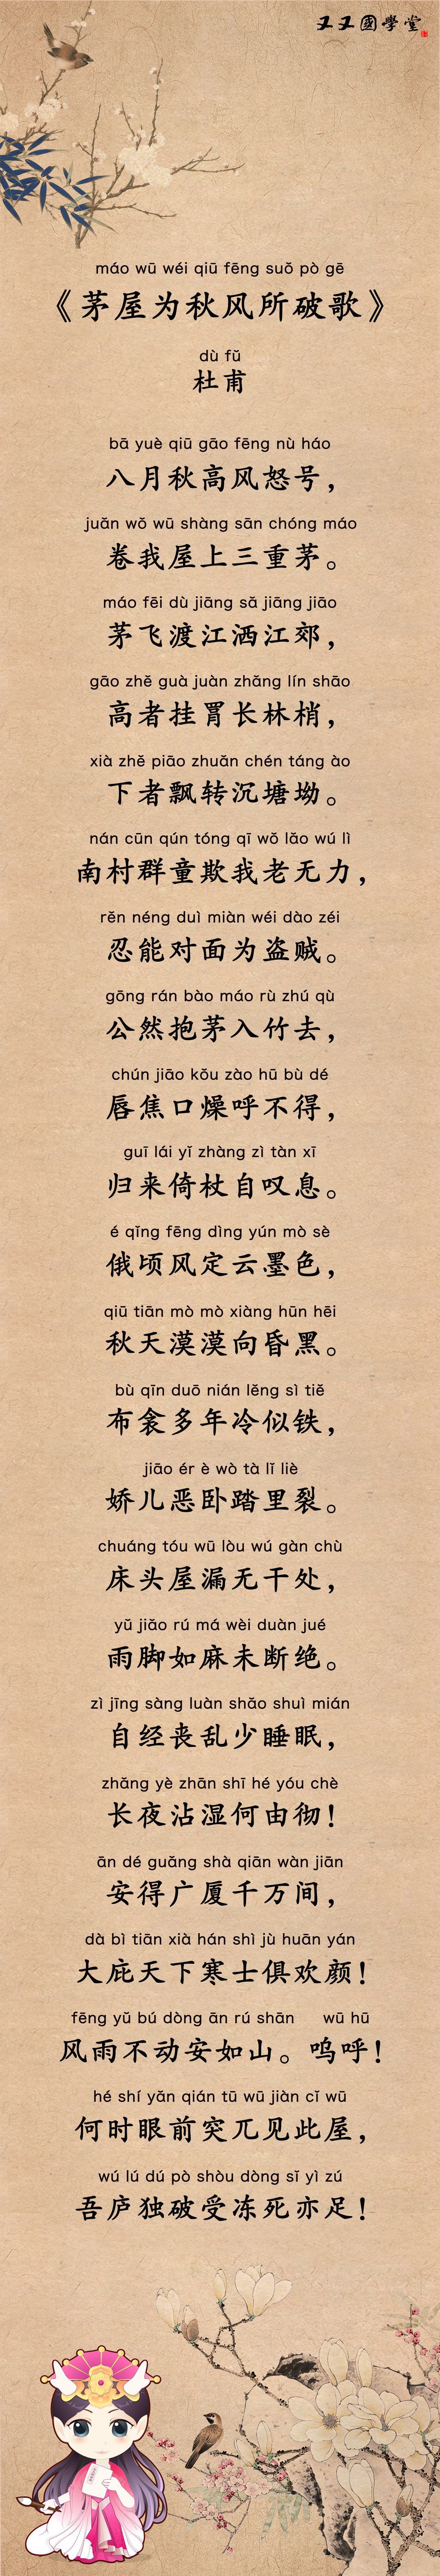 又又國學堂
máo wū wéi qiū fēng suǒ pò gē
《茅屋为秋风所破歌》
dù fǔ
杜甫
bā yuè qiū gāo fēng nù háo
八月秋高风怒号，
juǎn wǒ wū shàng sān chóng máo
卷我屋上三重茅。
máo fēi dù jiāng sǎ jiāng jiāo
茅飞渡江洒江郊，
gāo zhě guà juàn zhǎng lín shāo
高者挂罥长林梢，
xià zhě piāo zhuǎn chén táng ào
下者飘转沉塘坳。
nán cūn qún tóng qī wǒ lǎo wú lì
南村群童欺我老无力，
rěn néng duì miàn wéi dào zéi
忍能对面为盗贼。
gōng rán bào máo rù zhú qù
公然抱茅入竹去，
chún jiāo kǒu zào hū bù dé
唇焦口燥呼不得，
guī lái yǐ zhàng zì tàn xī
归来倚杖自叹息。
é qǐng fēng dìng yún mò sè
俄顷风定云墨色，
qiū tiān mò mò xiàng hūn hēi
秋天漠漠向昏黑。
bù qīn duō nián lěng sì tiě
布衾多年冷似铁，
jiāo ér è wò tà lǐ liè
娇儿恶卧踏里裂。
chuáng tóu wū lòu wú gàn chù
床头屋漏无干处，
yǔ jiǎo rú má wèi duàn jué
雨脚如麻未断绝。
zì jīng sàng luàn shāo shuì mián
自经丧乱少睡眠，
zhǎng yè zhān shī hé yóu chè
长夜沾湿何由彻！
ān dé guǎng shà qiān wàn jiān
安得广厦千万间，
dà bì tiān xià hán shì jù huān yán
大庇天下寒士俱欢颜！
fēng yǔ bú dòng ān rú shān wū hū
风雨不动安如山。呜呼！
hé shí yǎn qián tū wū jiàn cǐ wū
何时眼前突兀见此屋，
wú lú dú pò shòu dòng sǐ yì zú
吾庐独破受冻死亦足！